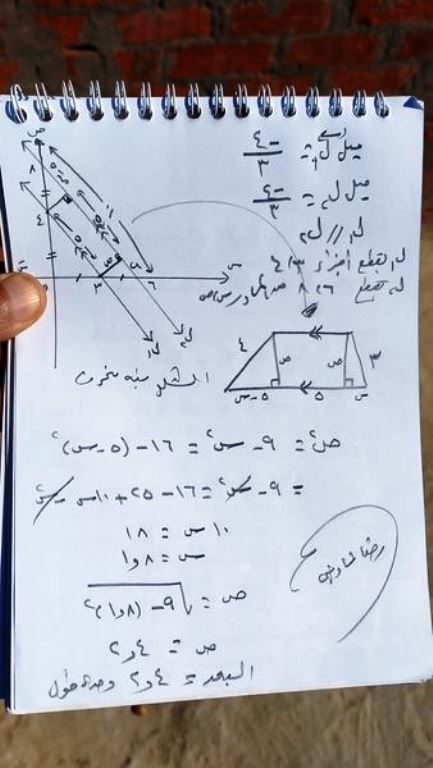 ميل ل١ = -٤/٣
ميل ل٢ = -٤/٣
ل١ // ل٢
ل١ تقطع أجزاء ٣، ٤
ل٢ تقطع ٦، ٨
ص
٨
٤
٣
٦
س
ل١
ل٢
٥
١٠
٤
ص
ص
٣
٥ - س
٥
س
الشكل شبه منحرف
ص٢ = ٩ - س٢ = ١٦ - (٥ - س)٢
= ٩ - س٢ = ١٦ - ٢٥ + ١٠س - س٢
١٠ س = ١٨
س = ١,٨
ص = √٩ - (١,٨)٢
ص = ٢,٤
البعد = ٢,٤ وحدة طول
رضا